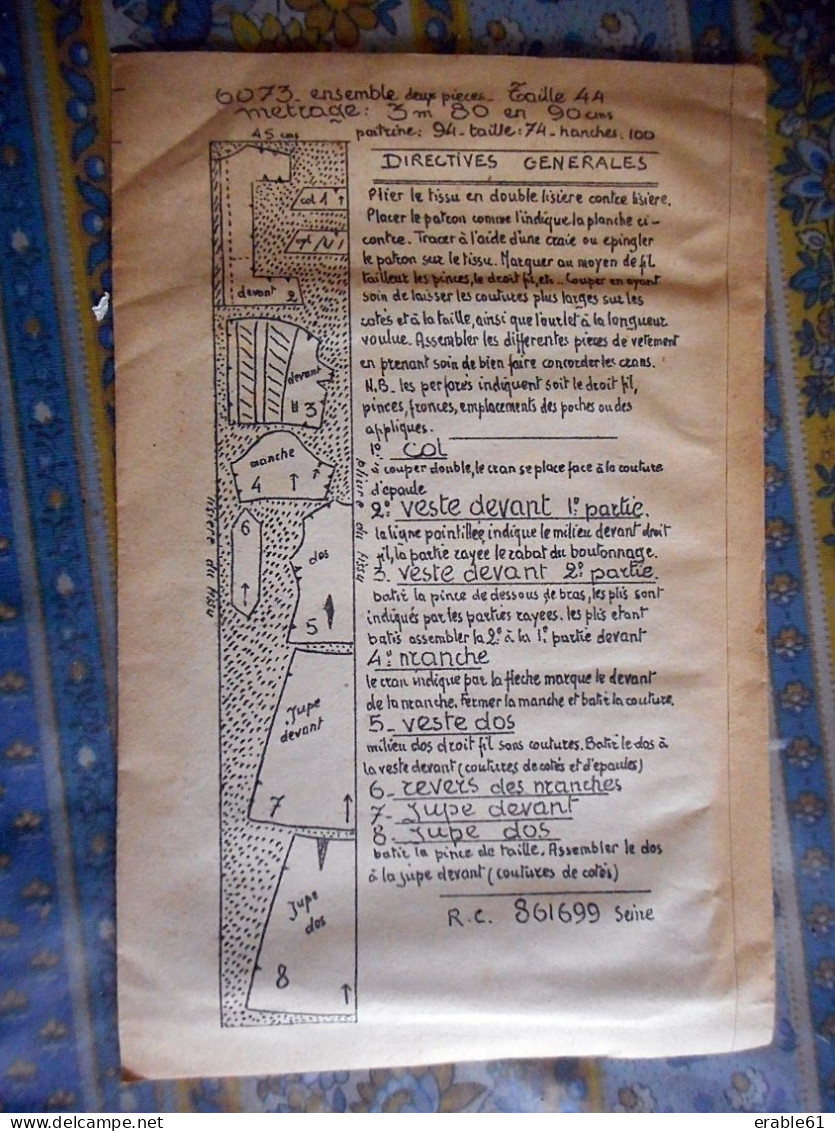 6073_ ensemble deux pieces_ Taille 44
metrage: 3m 80 en 90 cms
poitrine: 94_taille:74_hanches:100
45 cms
DIRECTIVES GENERALES
Plier le tissu en double lisière contre lisière.
Placer le patron comme l'indique la planche ci-
contre. Tracer à l'aide d'une craie ou epingler
le patron sur le tissu. Marquer au moyen de fil
tailleur les pinces, le droit fil, etc.. Couper en ayant
soin de laisser les coutures plus larges sur les
cotés et à la taille, ainsi que l'ourlet à la longueur
voulue. Assembler les differentes pieces de vetement
en prenant soin de bien faire concorder les crans.
N.B_ les perforés indiquent soit le droit fil,
pinces, fronces, emplacements des poches ou des
appliques.
1º COL
à couper double, le cran se place face à la couture
d'épaule
2º veste devant 1º partie.
la ligne pointillée indique le milieu devant droit
fil, la partie rayée le rabat du boutonnage.
3_ veste devant 2º partie.
batir la pince de dessous de bras, les plis sont
indiqués par les parties rayees. les plis etant
batis assembler la 2º à la 1º partie devant
4º manche
le cran indique par la fleche marque le devant
de la manche. Fermer la manche et batir la couture.
5_ veste dos
milieu dos droit fil sans coutures. Batir le dos à
la veste devant (coutures de cotés et d'epaules)
6_ revers des manches
7_ Jupe devant
8_ Jupe dos
batir la pince de taille. Assembler le dos
à la jupe devant (coutures de cotés)
R.C. 861699 Seine
col 1
devant 2
devant
3
manche
4
6
dos
5
lisiere du tissu
pliure du tissu
Jupe
devant
7
Jupe
dos
8
delcampe.net
erable61